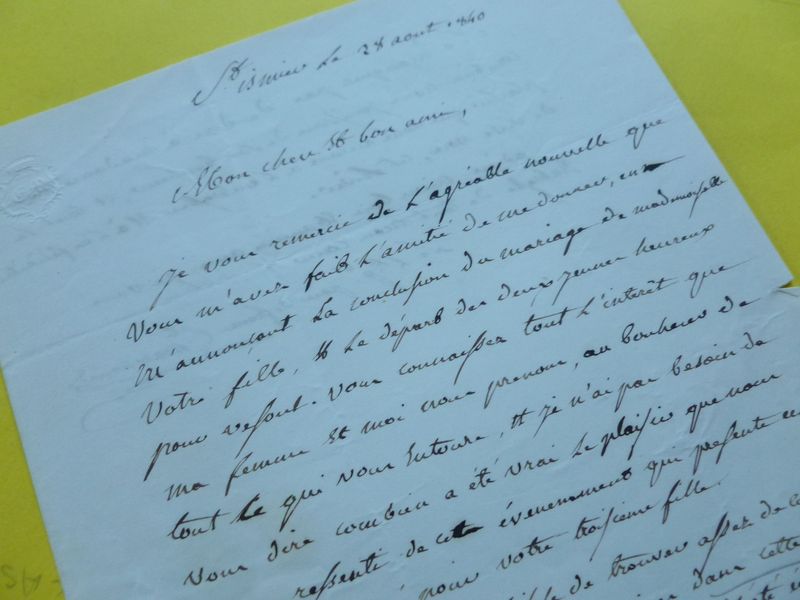 St ismier le 28 aout 1840
Mon cher et bon ami,
Je vous remercie de l'agréable nouvelle que
vous m'avez fait l'amitié de me donner, en
m'annoncant la conclusion du mariage de mademoiselle
votre fille, et le départ des deux jeunes heureux
pour vesoul. vous connaissez tout l'interêt que
ma femme et moi nous prenons, au bonheur de
tout ce qui vous entoure, et je n'ai pas besoin de
vous dire combien a été vrai le plaisir que nous
ressenti de cet évenement qui présente
pour votre troisieme fille.
de trouver assez de
dans cette